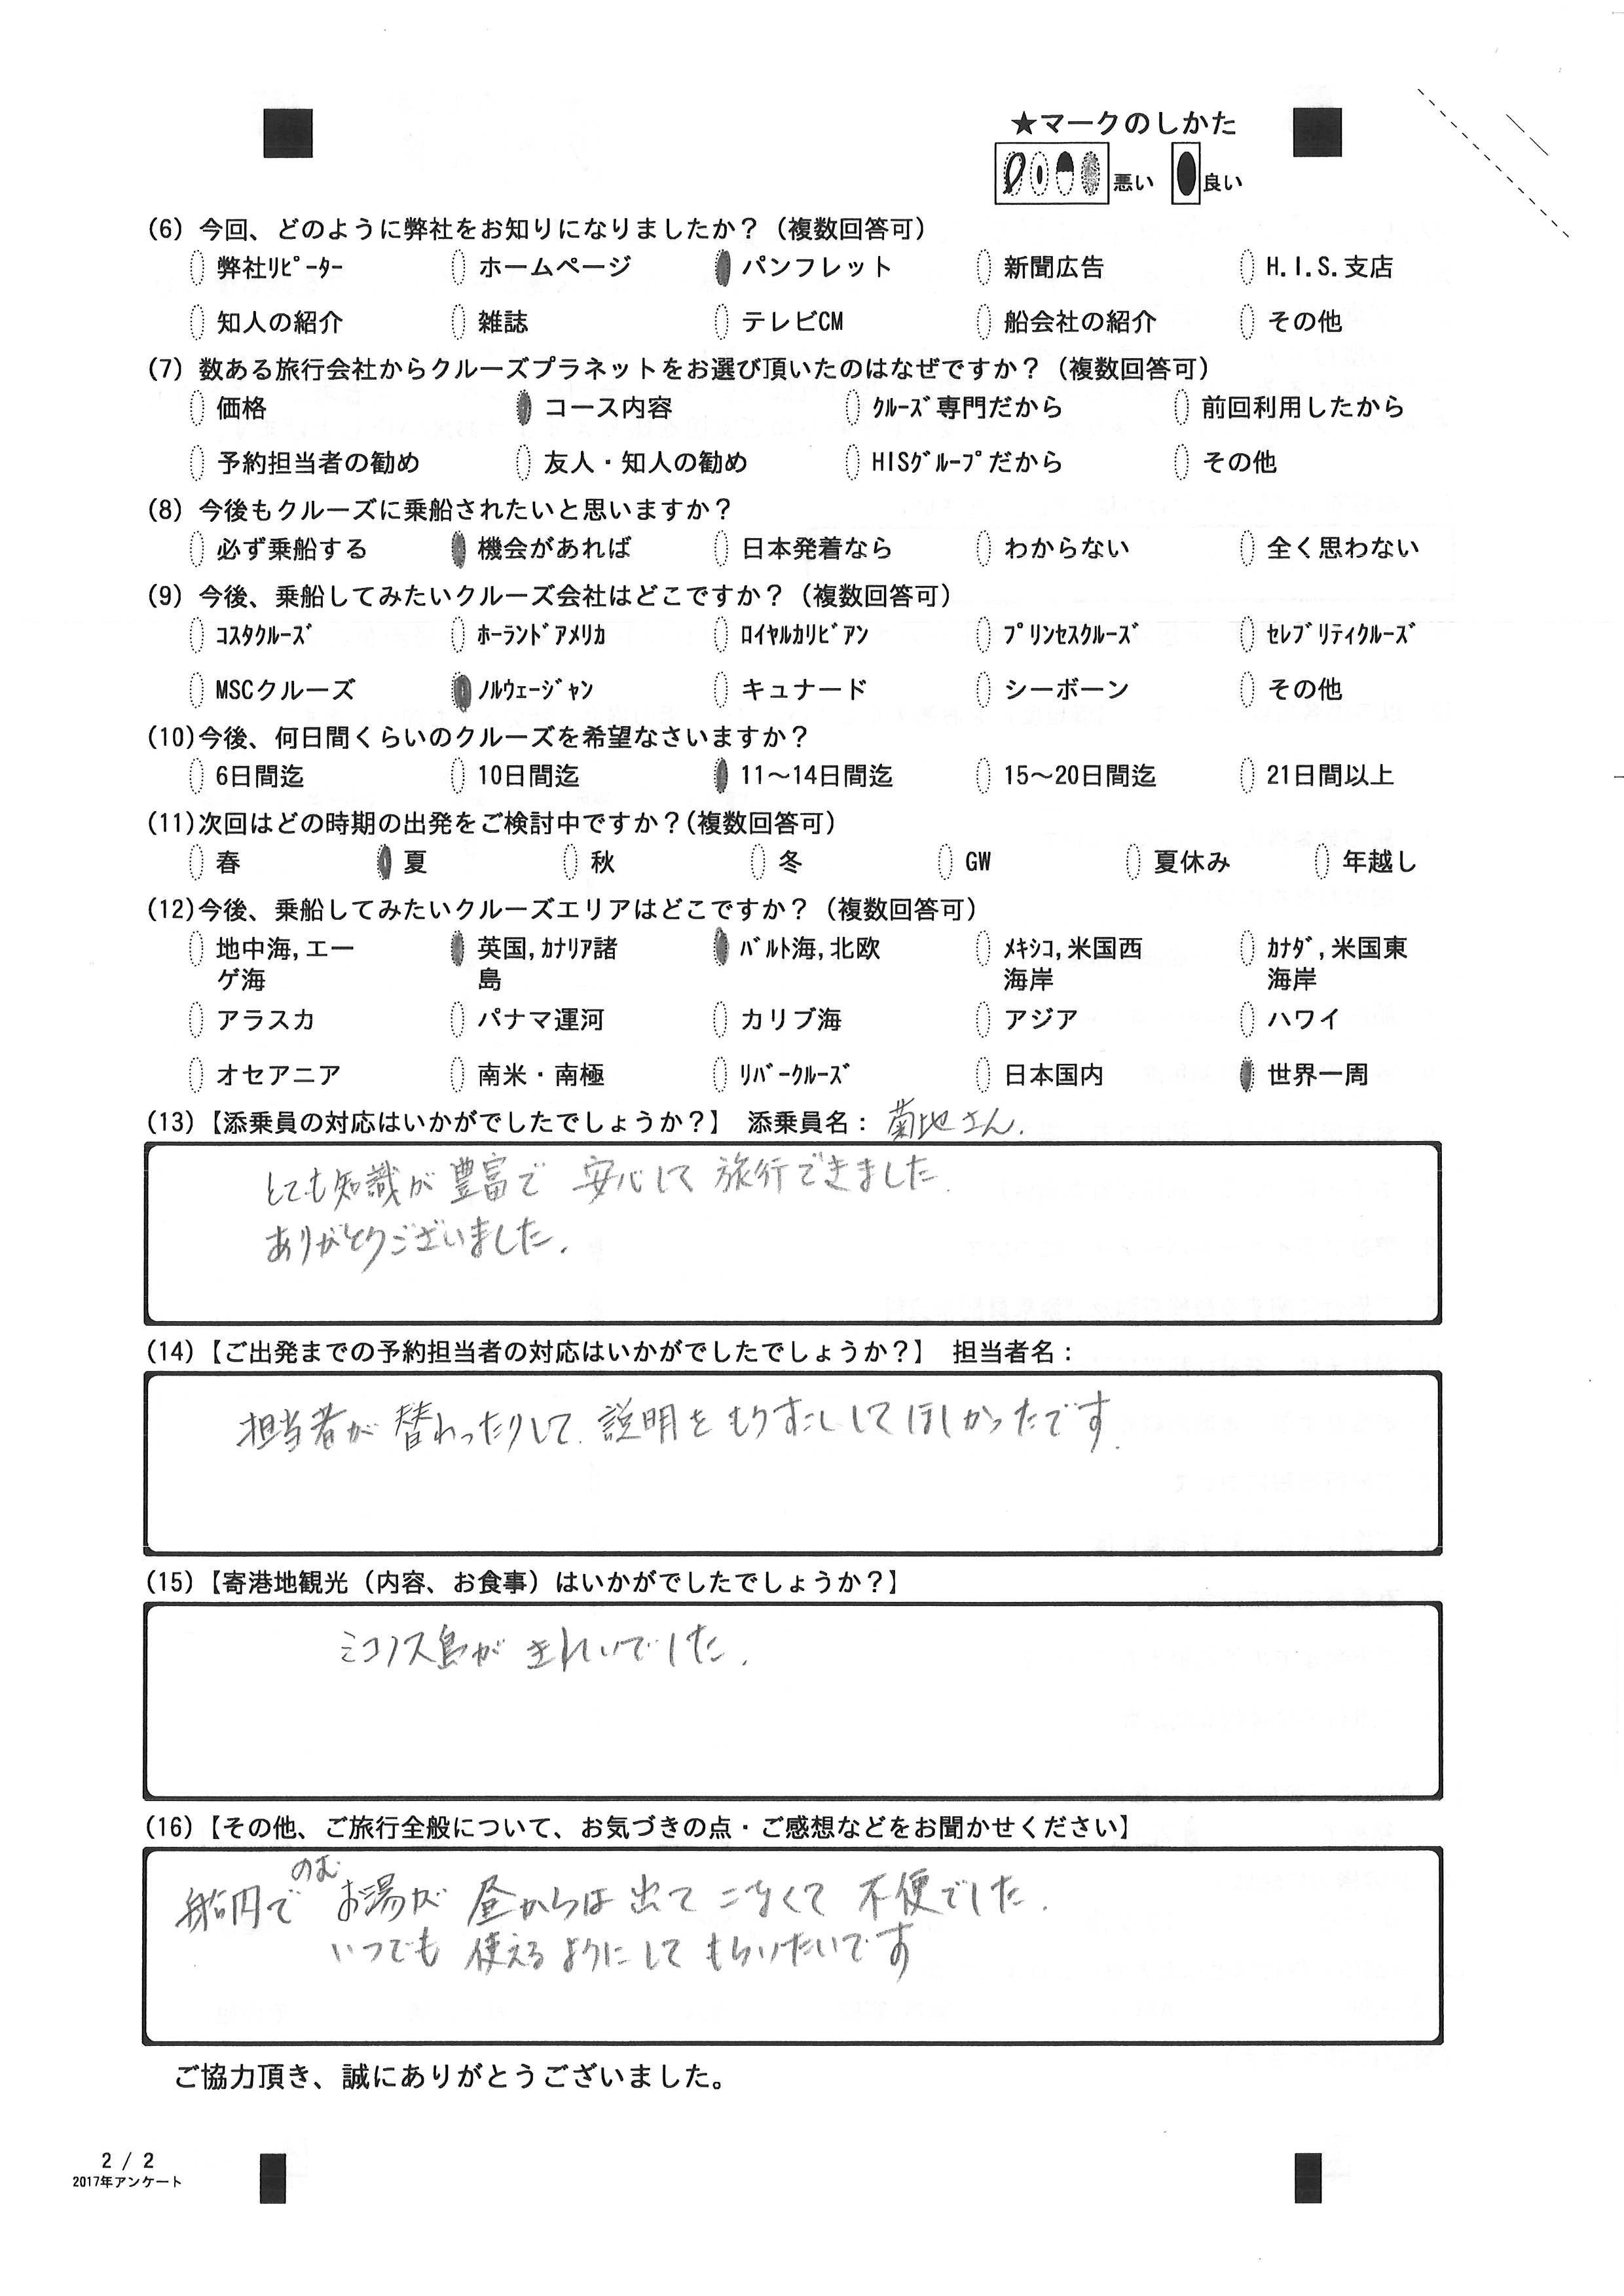 ★マークのしかた
悪い 良い
(6) 今回、どのように弊社をお知りになりましたか？（複数回答可）
弊社ﾘﾋﾟｰﾀｰ ホームページ パンフレット 新聞広告 H.I.S.支店
知人の紹介 雑誌 テレビCM 船会社の紹介 その他
(7) 数ある旅行会社からクルーズプラネットをお選び頂いたのはなぜですか？（複数回答可）
価格 コース内容 ｸﾙｰｽﾞ専門だから 前回利用したから
予約担当者の勧め 友人・知人の勧め HISｸﾞﾙｰﾌﾟだから その他
(8) 今後もクルーズに乗船されたいと思いますか？
必ず乗船する 機会があれば 日本発着なら わからない 全く思わない
(9) 今後、乗船してみたいクルーズ会社はどこですか？（複数回答可）
ｺｽﾀｸﾙｰｽﾞ ﾎｰﾗﾝﾄﾞｱﾒﾘｶ ﾛｲﾔﾙｶﾘﾋﾞｱﾝ ﾌﾟﾘﾝｾｽｸﾙｰｽﾞ ｾﾚﾌﾞﾘﾃｨｸﾙｰｽﾞ
MSCクルーズ ﾉﾙｳｪｰｼﾞｬﾝ キュナード シーボーン その他
(10)今後、何日間くらいのクルーズを希望なさいますか？
6日間迄 10日間迄 11～14日間迄 15～20日間迄 21日間以上
(11)次回はどの時期の出発をご検討中ですか？(複数回答可)
春 夏 秋 冬 GW 夏休み 年越し
(12)今後、乗船してみたいクルーズエリアはどこですか？（複数回答可）
地中海,エー 英国,ｶﾅﾘｱ諸 ﾊﾞﾙﾄ海,北欧 ﾒｷｼｺ,米国西 ｶﾅﾀﾞ,米国東
ゲ海 島 海岸 海岸
アラスカ パナマ運河 カリブ海 アジア ハワイ
オセアニア 南米・南極 ﾘﾊﾞｰｸﾙｰｽﾞ 日本国内 世界一周
(13)【添乗員の対応はいかがでしたでしょうか？】 添乗員名：菊地さん.
とても知識が豊富で 安心して 旅行できました.
ありがとうございました.
(14)【ご出発までの予約担当者の対応はいかがでしたでしょうか？】 担当者名：
担当者が替わったりして.説明をもうすこししてほしかったです.
(15)【寄港地観光（内容、お食事）はいかがでしたでしょうか？】
ミコノス島がきれいでした.
(16)【その他、ご旅行全般について、お気づきの点・ご感想などをお聞かせください】
のむ
船内で お湯が 昼からは 出て こなくて 不便でした.
いつでも 使えるようにして もらいたいです
ご協力頂き、誠にありがとうございました。
2 / 2
2017年アンケート